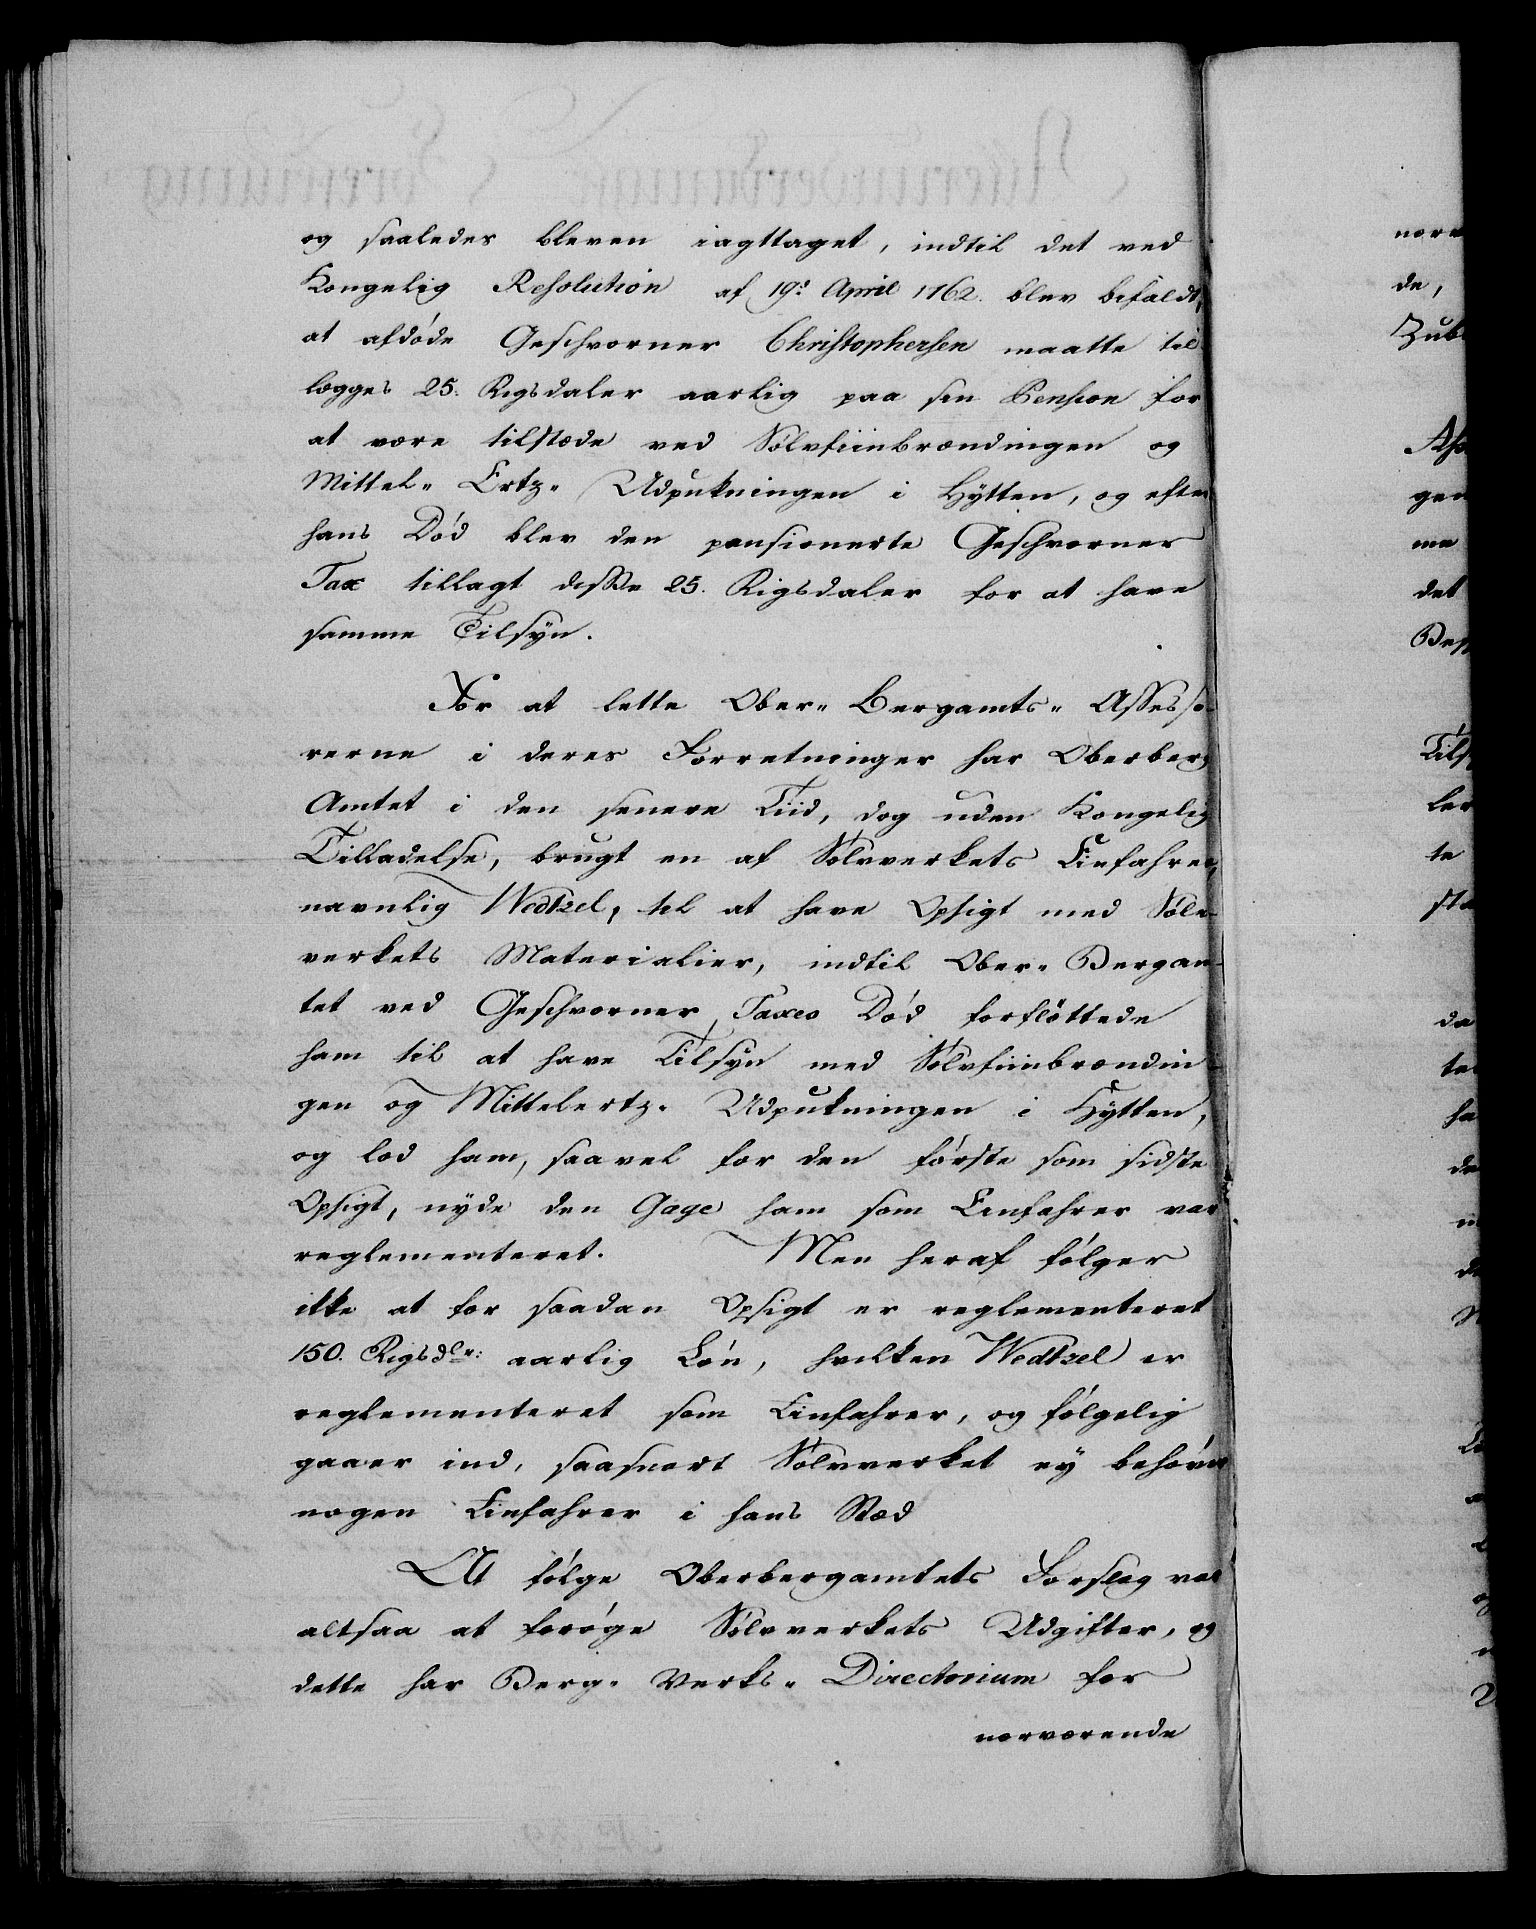 og saaledes bleven iagttaget, indtil det ved
Kongelig Resolution af 19de April 1762. blev befaldt,
at afdøde Geschworner Christophersen maatte til
lægges 25. Rigsdaler aarlig paa sin Pension for
at være tilstæde ved Sølvfiinbrændingen og
Mittel- Ertz- Udpukningen i Hytten, og efter
hans Død blev den pensionerte Geschworner
Tax tillagt disse 25. Rigsdaler for at have
samme Tilsyn.
For at lette Ober- Bergamts- Assesso-
rerne i deres Forretninger har Oberberg
Amtet i den senere Tiid, dog uden Kongelig
Tilladelse, brugt en af Sølvverkets Einfahrer,
navnlig Wedtzel, til at have Opsigt med Sølv-
verkets Materialier, indtil Ober- Bergam-
tet ved Geschworner Taxes Død forfløttede
ham til at have Tilsyn med Sølvfiinbrændin-
gen og Mittelertz- Udpukningen i Hytten,
og lod ham, saavel for den første som sidste
Opsigt, nyde den Gage ham som Einfahrer var
reglementeret. Men heraf følger
ikke at for saadan Opsigt er reglementeret
150. Rigsdlr: aarlig Løn, hvilken Wedtzel er
reglementeret som Einfahrer, og følgelig
gaaer ind, saasnart Sølvverket ey behøver
nogen Einfahrer i hans Stæd
At følge Oberbergamtets Forslag var
altsaa at forøge Sølvverkets Udgifter, og
dette har Berg- Verks- Directorium for
nærværende